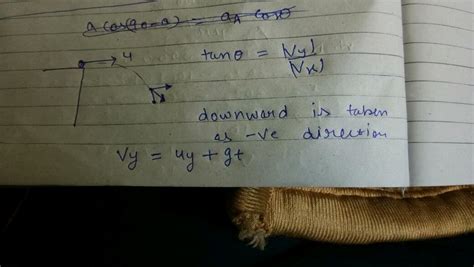 a cos(90-θ) = a_A cosθ
u
tanθ = |Vy|
|Vx|
downward is taken
as -ve direction
Vy = uy + gt